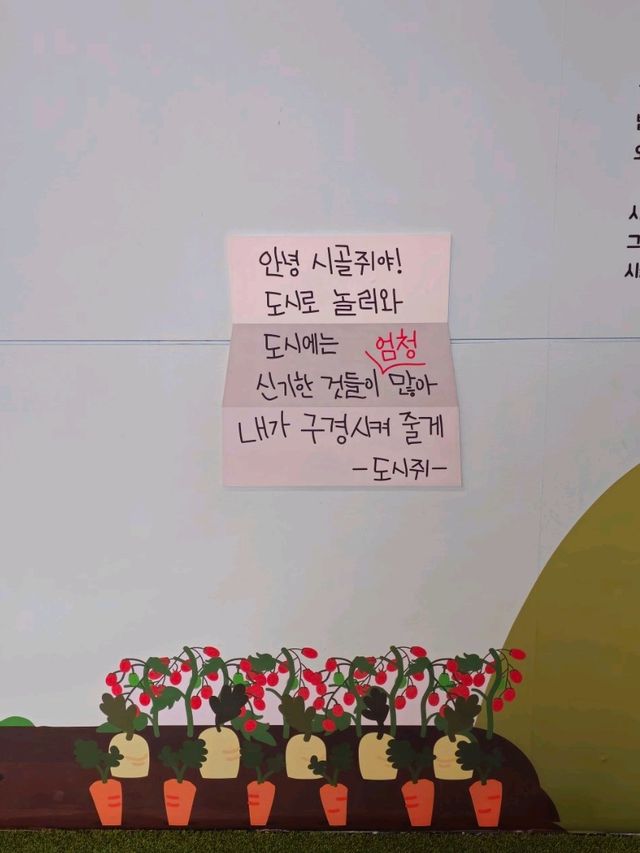 안녕 시골쥐야!
도시로 놀러와
도시에는 엄청
신기한 것들이 많아
내가 구경시켜 줄게
-도시쥐-